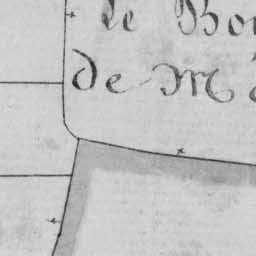 le Bo
de M